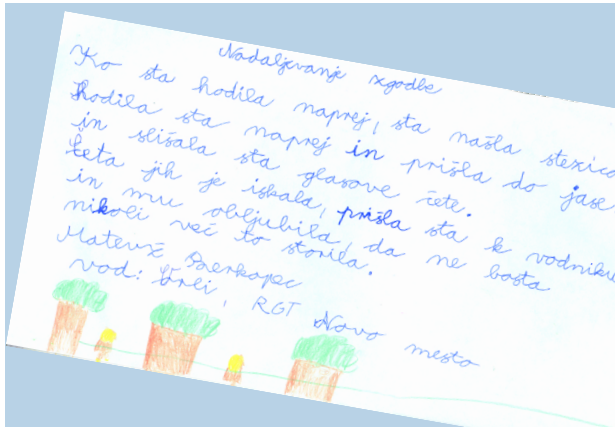 Nadaljevanje zgodbe
Ko sta hodila naprej, sta našla stezico
hodila sta naprej in prišla do jase
in slišala sta glasove čete.
četa jih je iskala, prišla sta k vodniku
in mu obljubila, da ne bosta
nikoli več to storila.
Matevž
vod: Orli, RGT Novo mesto